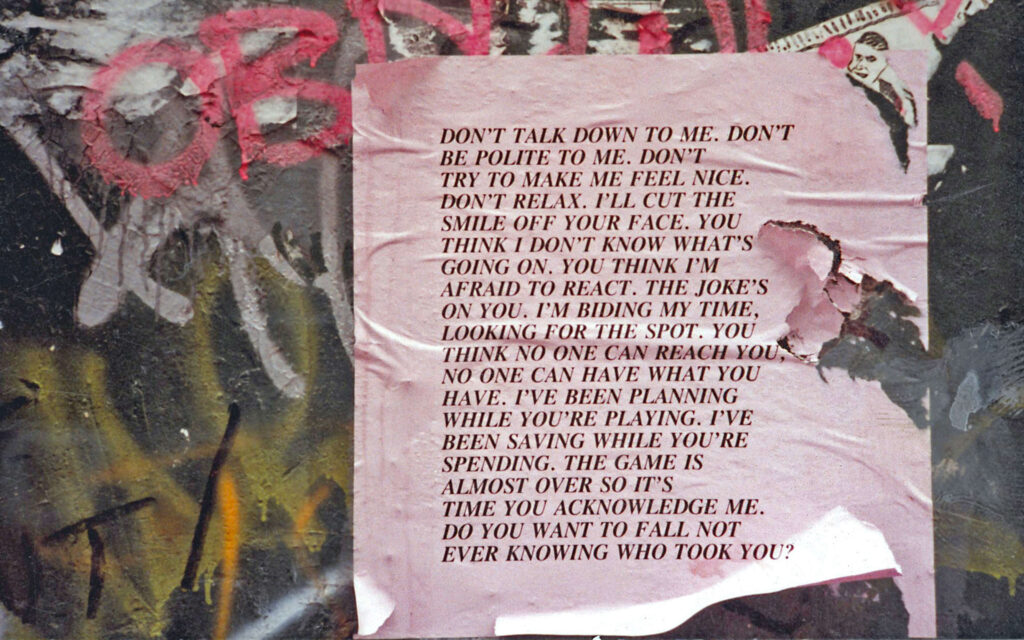 DON'T TALK DOWN TO ME. DON'T
BE POLITE TO ME. DON'T
TRY TO MAKE ME FEEL NICE.
DON'T RELAX. I'LL CUT THE
SMILE OFF YOUR FACE. YOU
THINK I DON'T KNOW WHAT'S
GOING ON. YOU THINK I'M
AFRAID TO REACT. THE JOKE'S
ON YOU. I'M BIDING MY TIME,
LOOKING FOR THE SPOT. YOU
THINK NO ONE CAN REACH YOU,
NO ONE CAN HAVE WHAT YOU
HAVE. I'VE BEEN PLANNING
WHILE YOU'RE PLAYING. I'VE
BEEN SAVING WHILE YOU'RE
SPENDING. THE GAME IS
ALMOST OVER SO IT'S
TIME YOU ACKNOWLEDGE ME.
DO YOU WANT TO FALL NOT
EVER KNOWING WHO TOOK YOU?